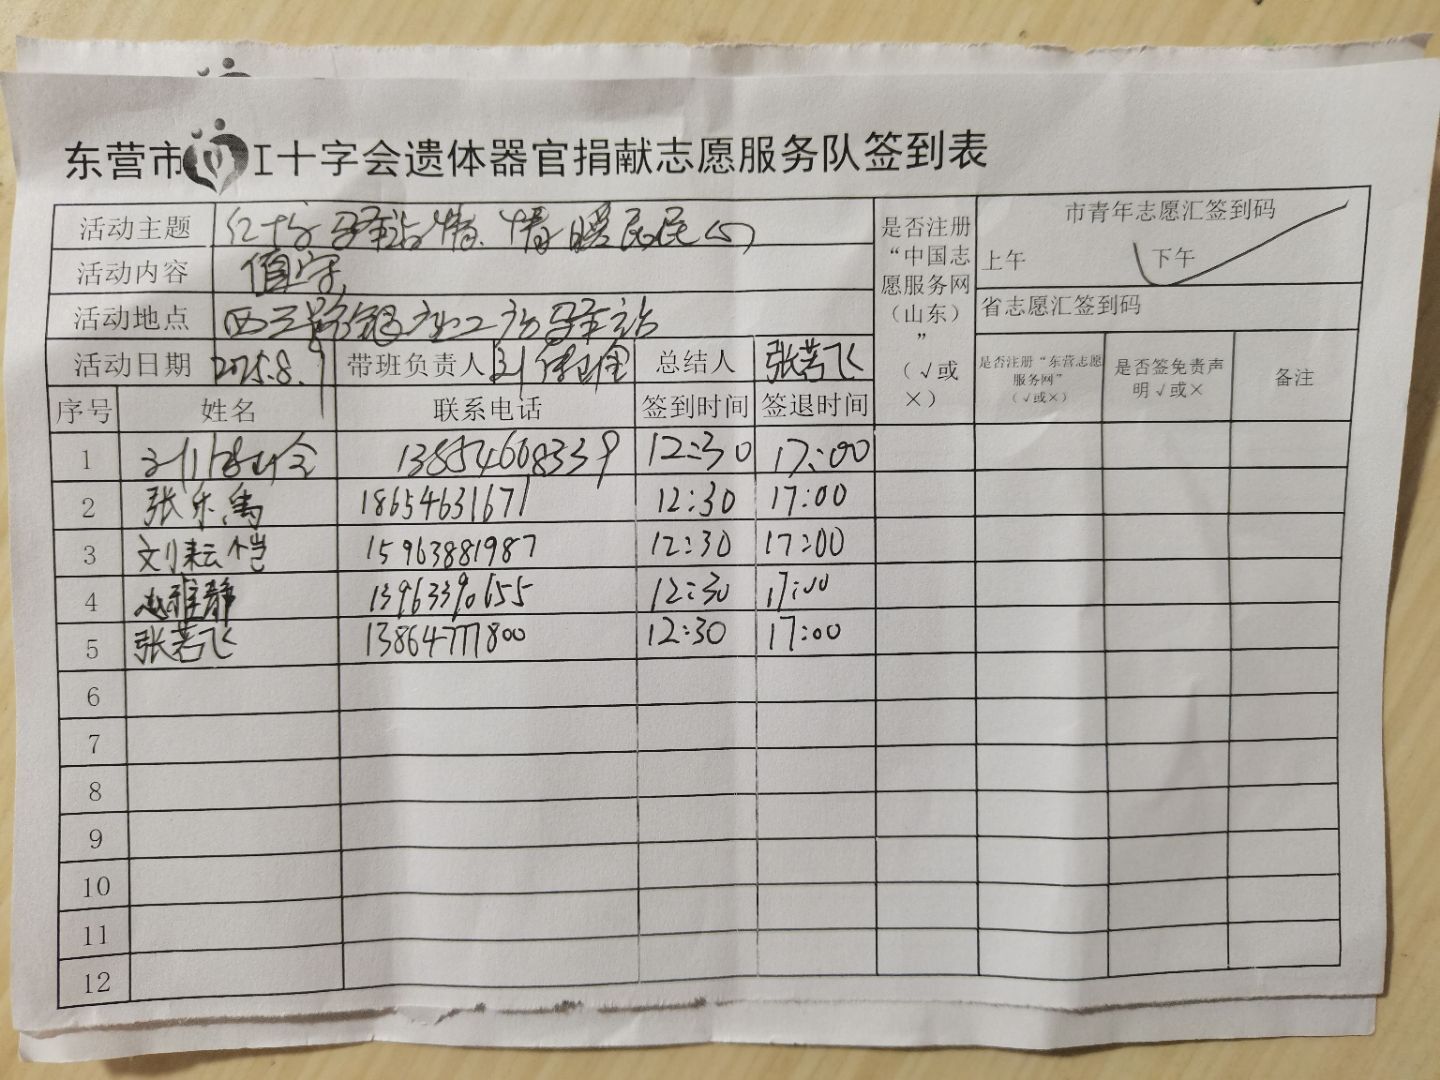 东营市 工十字会遗体器官捐献志愿服务队签到表
活动主题 红十字驿站情、情暖民民心
活动内容 值守
活动地点 西三路 驿站
活动日期 2025.8.9 带班负责人 刘 总结人 张若飞
是否注册“中国志愿服务网（山东）”（√或×）
市青年志愿汇签到码
上午 下午 √
省志愿汇签到码
是否注册“东营志愿服务网”（√或×） 是否签免责声明√或× 备注
序号 姓名 联系电话 签到时间 签退时间
1 刘 13854668339 12:30 17:00
2 张乐禹 18654631671 12:30 17:00
3 刘耘恺 15963881987 12:30 17:00
4 赵雅静 13963390655 12:30 17:00
5 张若飞 13864777800 12:30 17:00
6
7
8
9
10
11
12